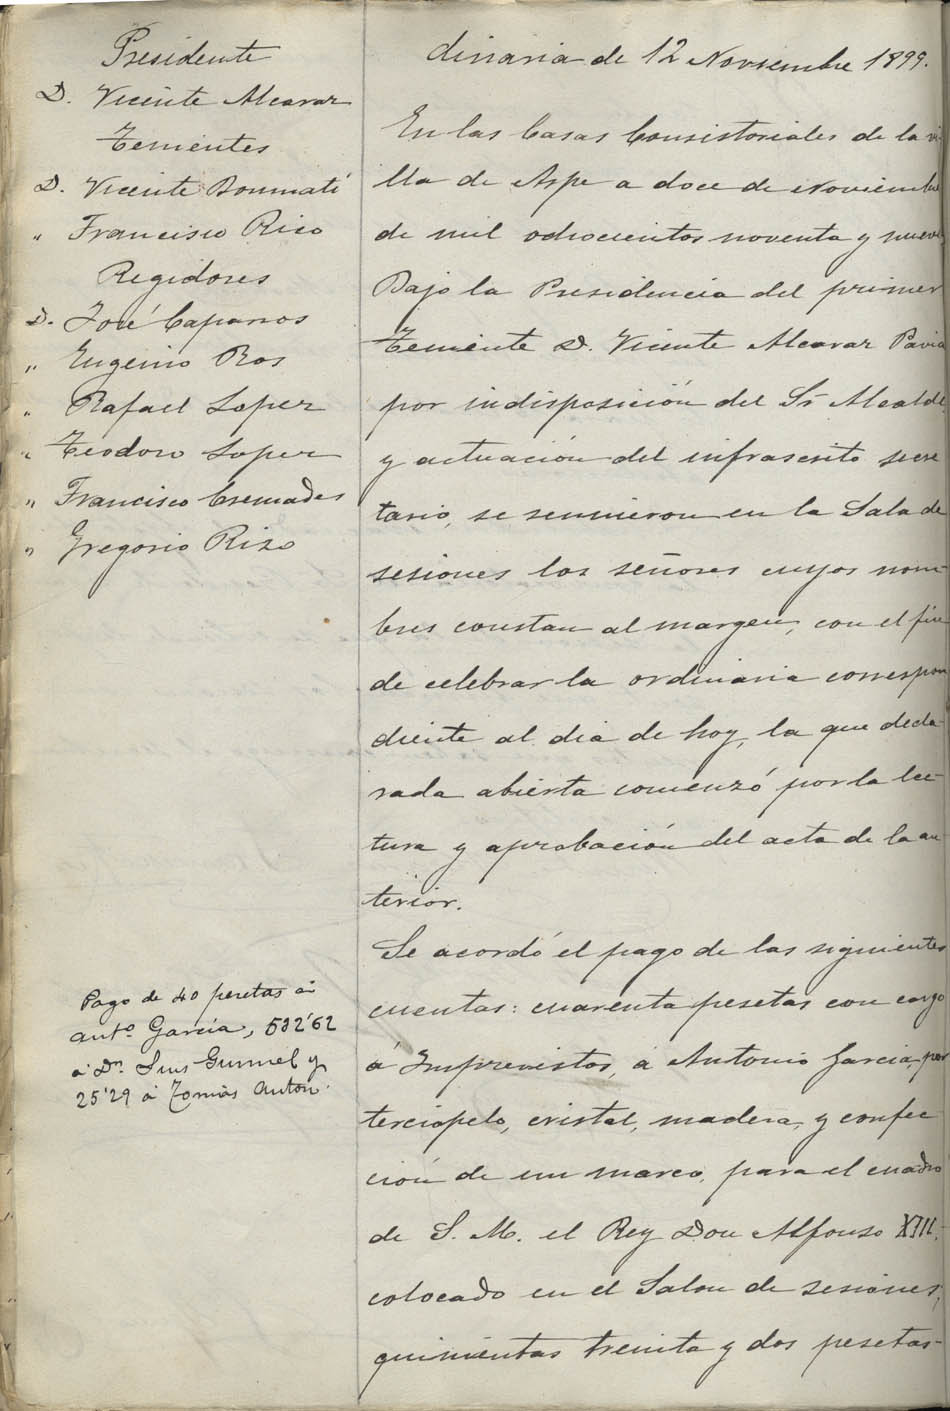 Presidente
D. Vicente Alcaraz
Tenientes
D. Vicente Bonmatí
" Francisco Rico
Regidores
D. José Caparros
" Eugenio Ros
" Rafael Lopez
" Teodoro Lopez
" Francisco Cremades
" Gregorio Rizo
Pago de 40 pesetas á
Antº Garcia, 532'62
á Dn. Luis Gumiel y
25'29 á Tomás Antón.
dinaria de 12 Noviembre 1899.
En las Casas Consistoriales de la vi-
lla de Aspe a doce de Noviembre
de mil ochocientos noventa y nueve
Bajo la Presidencia del primer
Teniente D. Vicente Alcaraz Pavia
por indisposición del Sr Alcalde
y actuación del infrascrito secre
tario, se reunieron en la Sala de
sesiones los señores cuyos nom-
bres constan al margen, con el fin
de celebrar la ordinaria correspon
diente al dia de hoy, la que decla-
rada abierta comenzó por la lec-
tura y aprobación del acta de la an-
terior.
Se acordó el pago de las siguientes
cuentas: cuarenta pesetas con cargo
á Imprevistos, á Antonio Garcia, por
terciopelo, cristal, madera, y confec
ción de un marco, para el cuadro
de S. M. el Rey Don Alfonso XIII,
colocado en el Salon de sesiones;
quinientas treinta y dos pesetas-